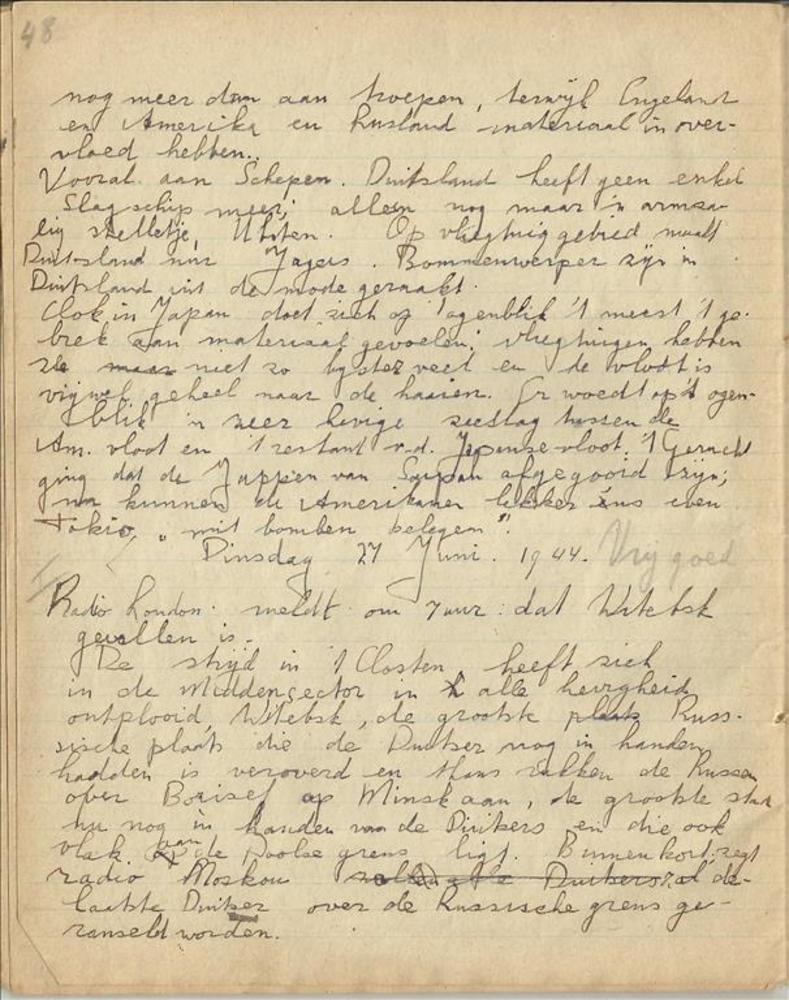 48
nog meer dan aan troepen, terwijl Engeland
en Amerika en Rusland materiaal in over-
vloed hebben.
Vooral aan Schepen. Duitsland heeft geen enkel
Slagschip meer; alleen nog maar 'n armza-
lig stelletje Uboten. Op vliegtuig gebied maakt
Duitsland nur Jagers. Bommenwerper zijn in
Duitsland uit de mode geraakt.
Ook in Japan doet zich op 't ogenblik 't meest 't ge-
brek aan materiaal gevoelen; vliegtuigen hebben
ze maar niet zo byster veel en de vloot is
vrijwel geheel naar de haaien. Er woedt op 't ogen-
blik 'n zeer hevige zeeslag tussen de
Am. vloot en 't restant v.d. Japanse vloot. 't Gerucht
ging dat de Jappen van Saipan afgegooid zijn;
nu kunnen de Amerikanen lekker eens even
Tokio "mit bomben belegen".
Dinsdag 27 Juni. 1944. Vrij goed
Radio London meldt om 7 uur: dat Witebsk
gevallen is.
De strijd in 't Oosten, heeft zich
in de Middensector in alle hevigheid
ontplooid, Witebsk, de grootste plaats Russ-
sische plaats die de Duitser nog in handen
hadden is veroverd en thans rukken de Russen
over Borisef op Minsk aan, de grootste stad
nu nog in handen van de Duitsers en die ook
vlak aan de Poolse grens ligt. Binnenkort, zegt
radio Moskou zullen alle Duitsers zal de-
laatste Duitser over de Russische grens ge-
ranseld worden.